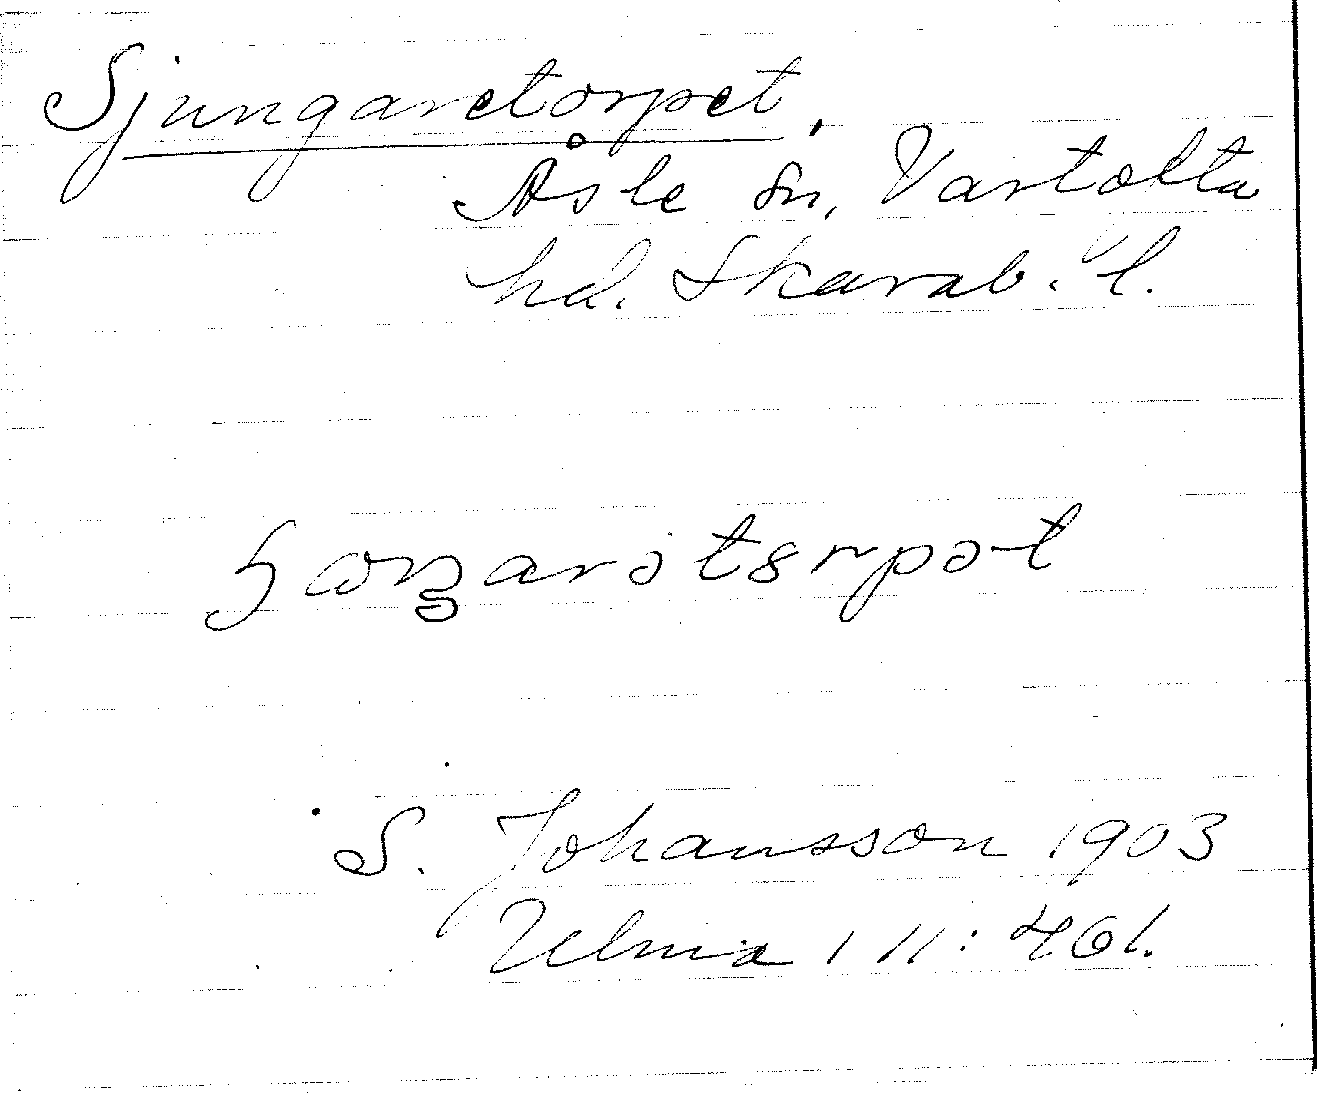 Sjungaretorpet.
Åsle sn, Vartofta
hd. Skarab. l.
S. Johansson 1903
Ulma 111: 461.